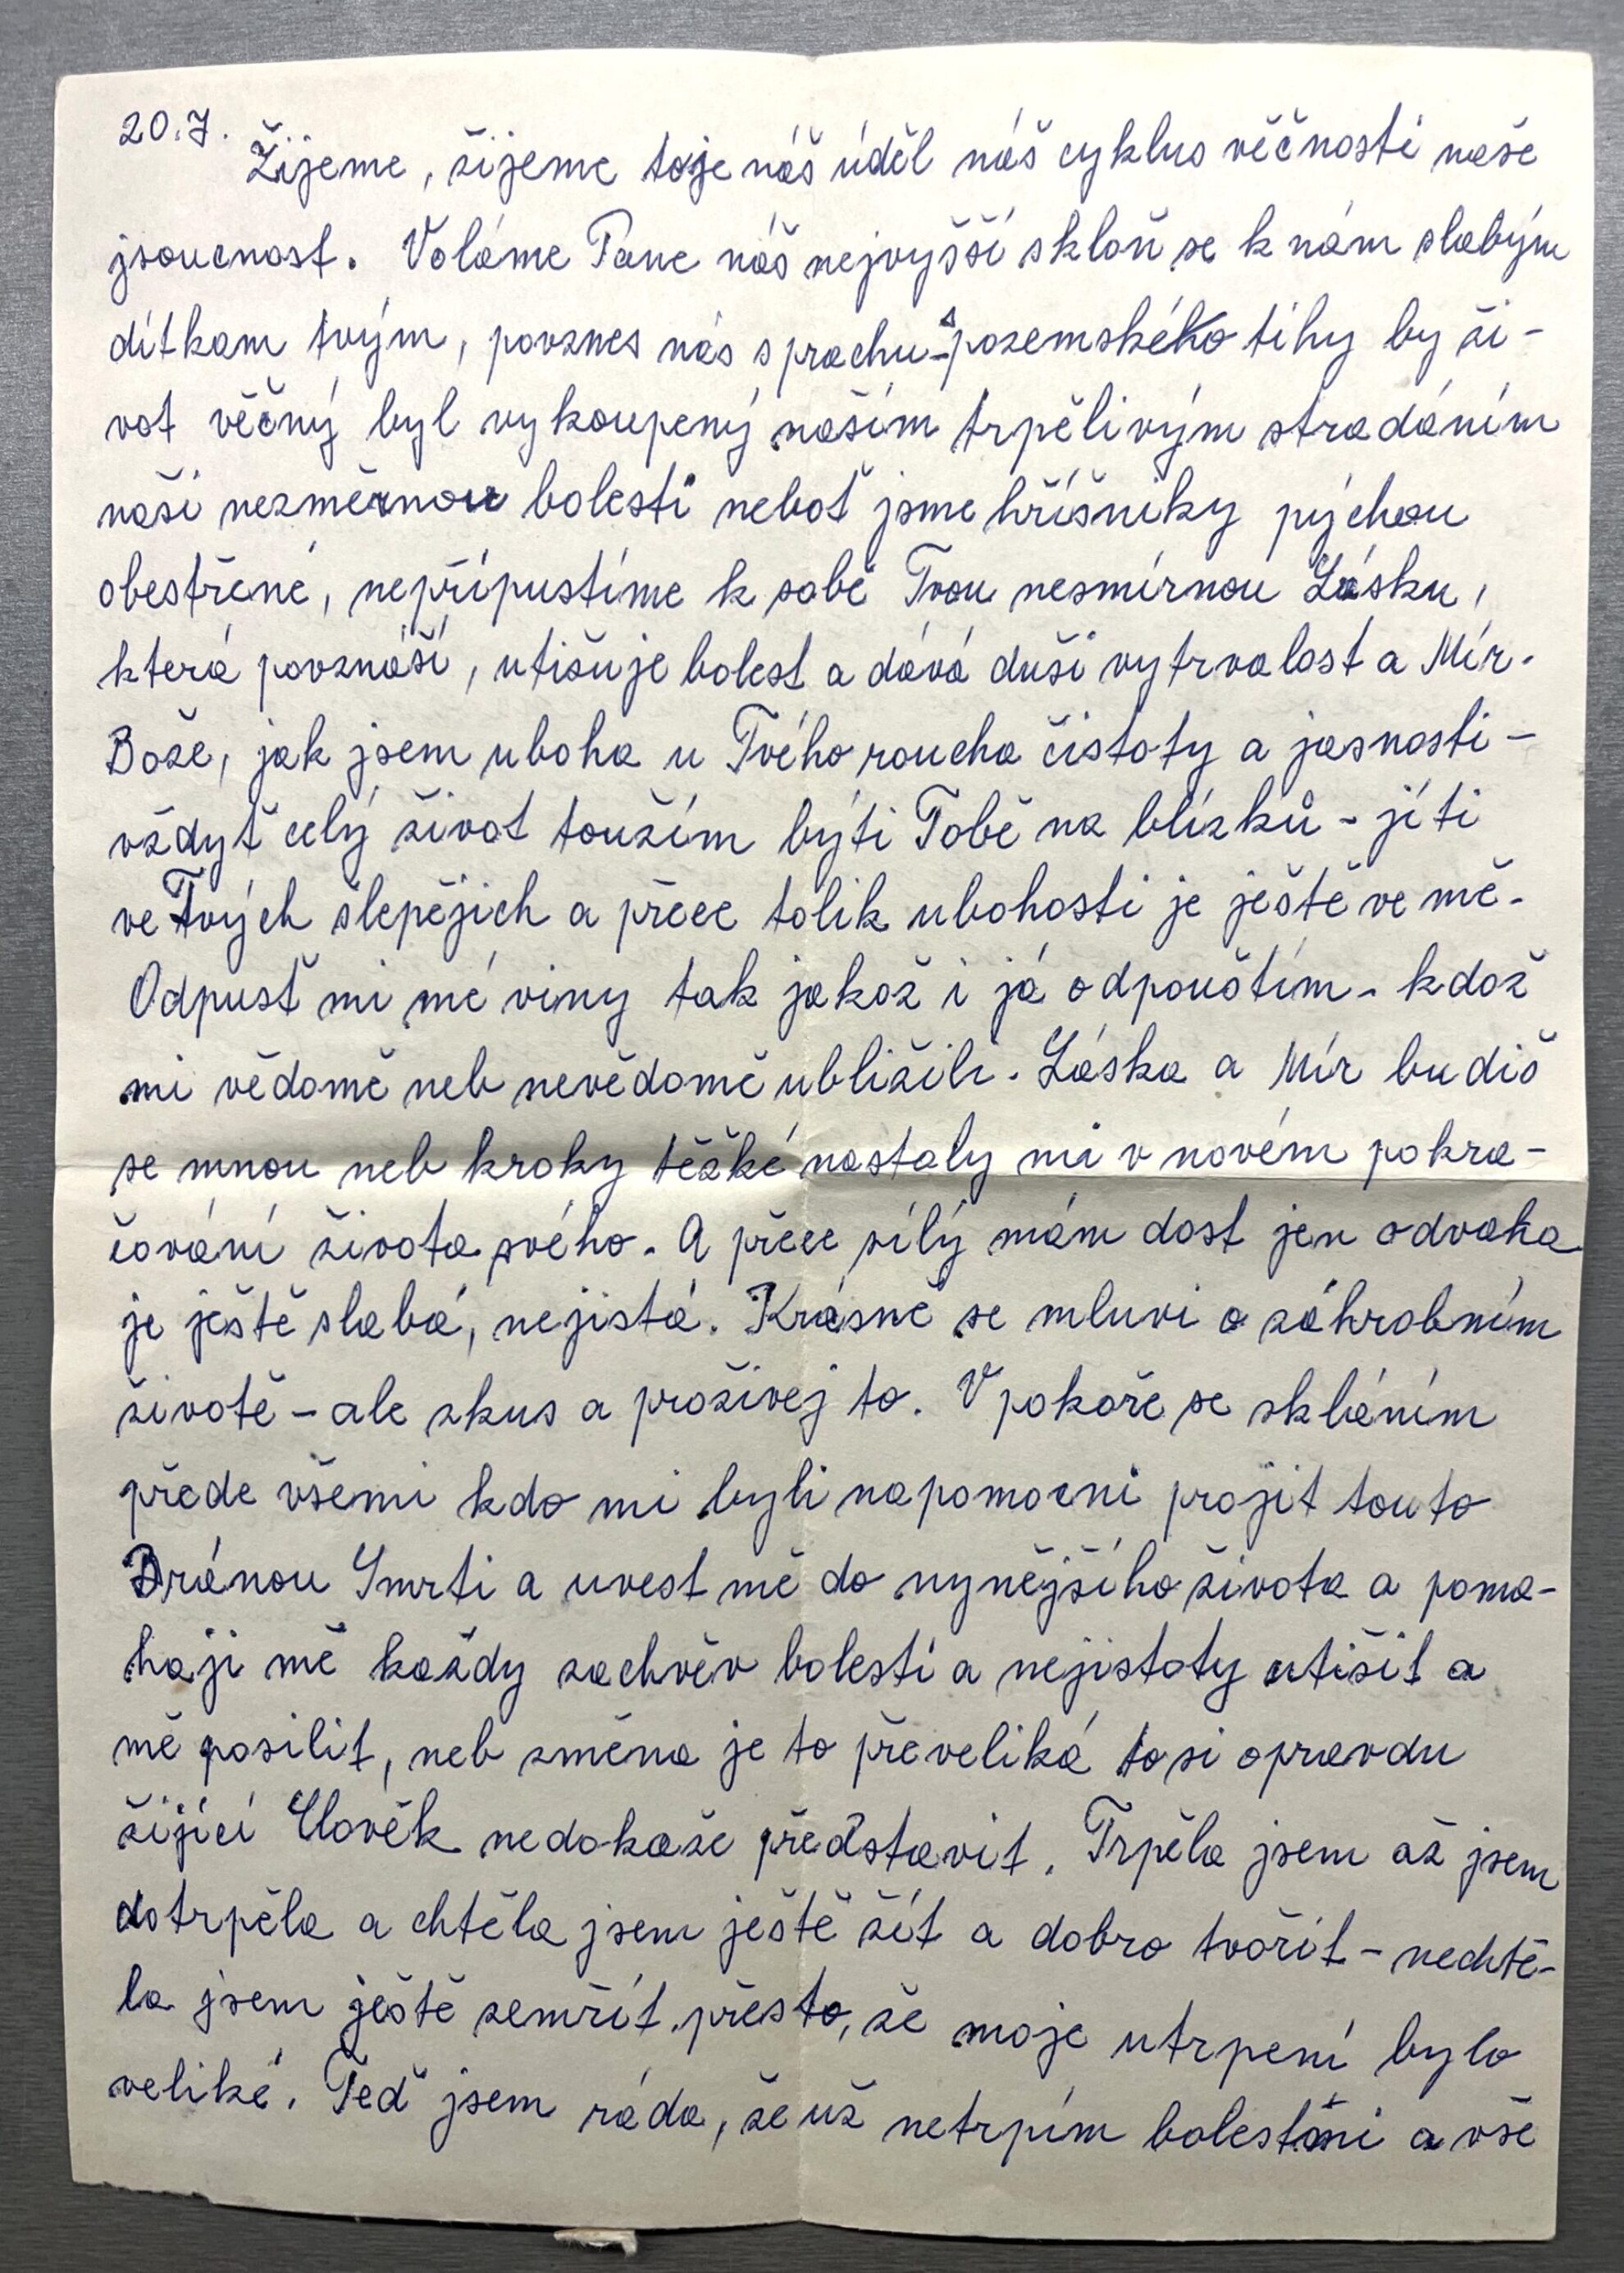 20.7.
Žijeme, žijeme to je náš úděl náš cyklus věčnosti naše
jsoucnost. Voláme Pane náš nejvyšší skloň se k nám slabým
dítkam tvým, povznes nás s prachu - pozemského tíhy by ži-
vot věčný byl vykoupený naším trpělivým strádáním
naší nezměrnou bolestí neboť jsme hříšníky pýchou
obestřené, nepřipustíme k sobě Tvou nesmírnou Lásku,
která povznáší, utišuje bolest a dává duši vytrvalost a Mír.
Bože, jak jsem uboha u Tvého roucha čistoty a jasnosti -
vždyť celý život toužím býti Tobě na blízků - jíti
ve Tvých šlepějich a přece tolik ubohosti je ještě ve mě.
Odpusť mi mé viny tak jakož i já odpouštím - kdož
mi vědomě neb nevědomě ubližili. Láska a Mír budiš
se mnou neb kroky těžké nastaly mi v novém pokra-
čování života svého. A přece sílý mám dost jen odvaha
je ještě slabá, nejistá. Krásně se mluvi o záhrobním
životě - ale zkus a prožívej to. V pokoře se skláním
přede všemi kdo mi byli napomocni projit touto
Bránou Smrti a uvest mě do nynějšího života a poma-
haji mě každy zachvěv bolestí a nejistoty utišit a
mě posilit, neb změna je to převeliká to si opravdu
žijící Člověk nedokaže představit. Trpěla jsem až jsem
dotrpěla a chtěla jsem ještě žít a dobro tvořit - nechtě-
la jsem ještě zemřít přesto, že moje utrpení bylo
veliké. Teď jsem ráda, že už netrpím bolestmi a vše